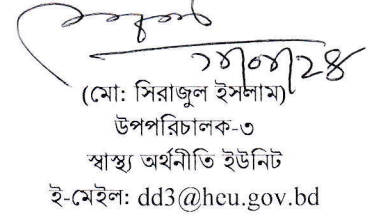 (মো: সিরাজুল ইসলাম)
উপপরিচালক-৩
স্বাস্থ্য অর্থনীতি ইউনিট
ই-মেইল: dd3@heu.gov.bd